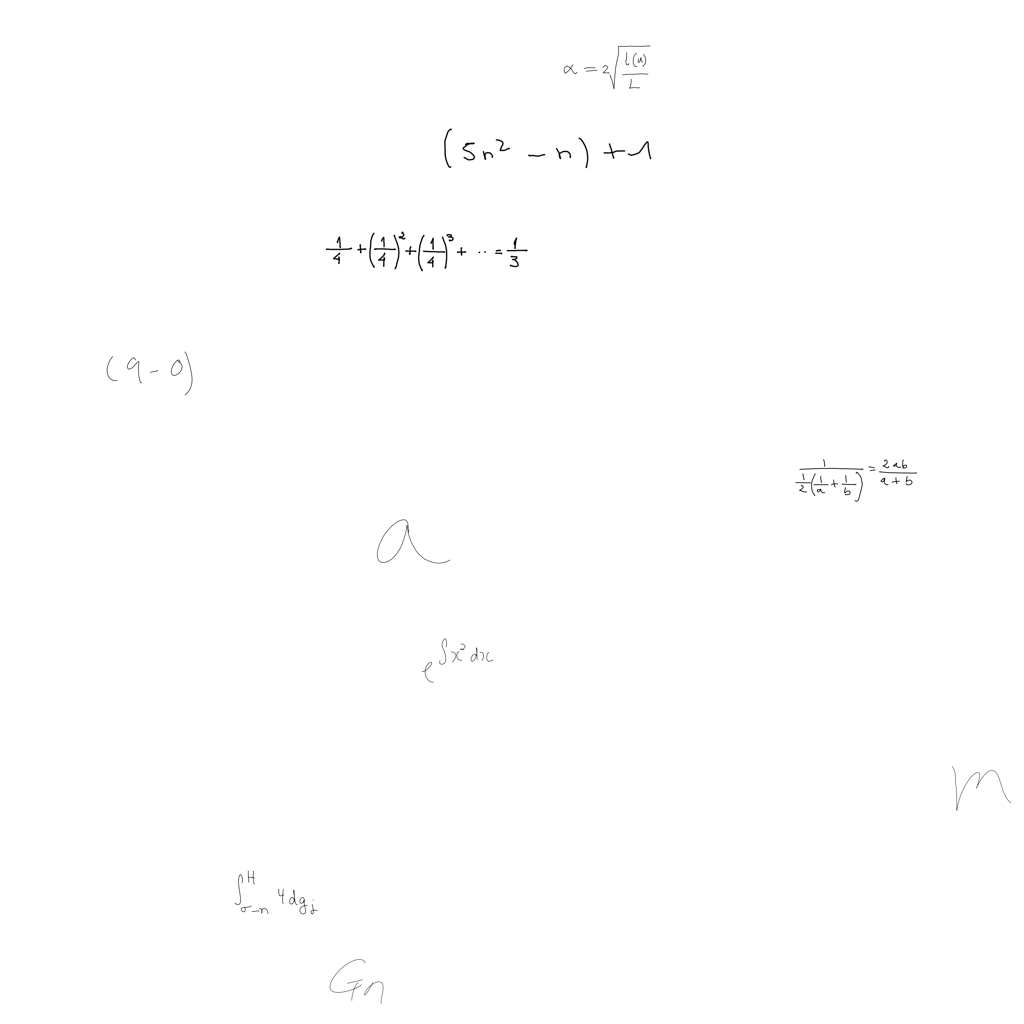 α = 2√(l(a)/L)
(5n² - n) + 1
1/4 + (1/4)² + (1/4)³ + ·· = 1/3
(9 - 0)
1/(1/2(1/a + 1/b)) = 2ab/(a + b)
a
e^(∫x² dx)
m
∫_(σ-n)^H 4dg_j
Gn